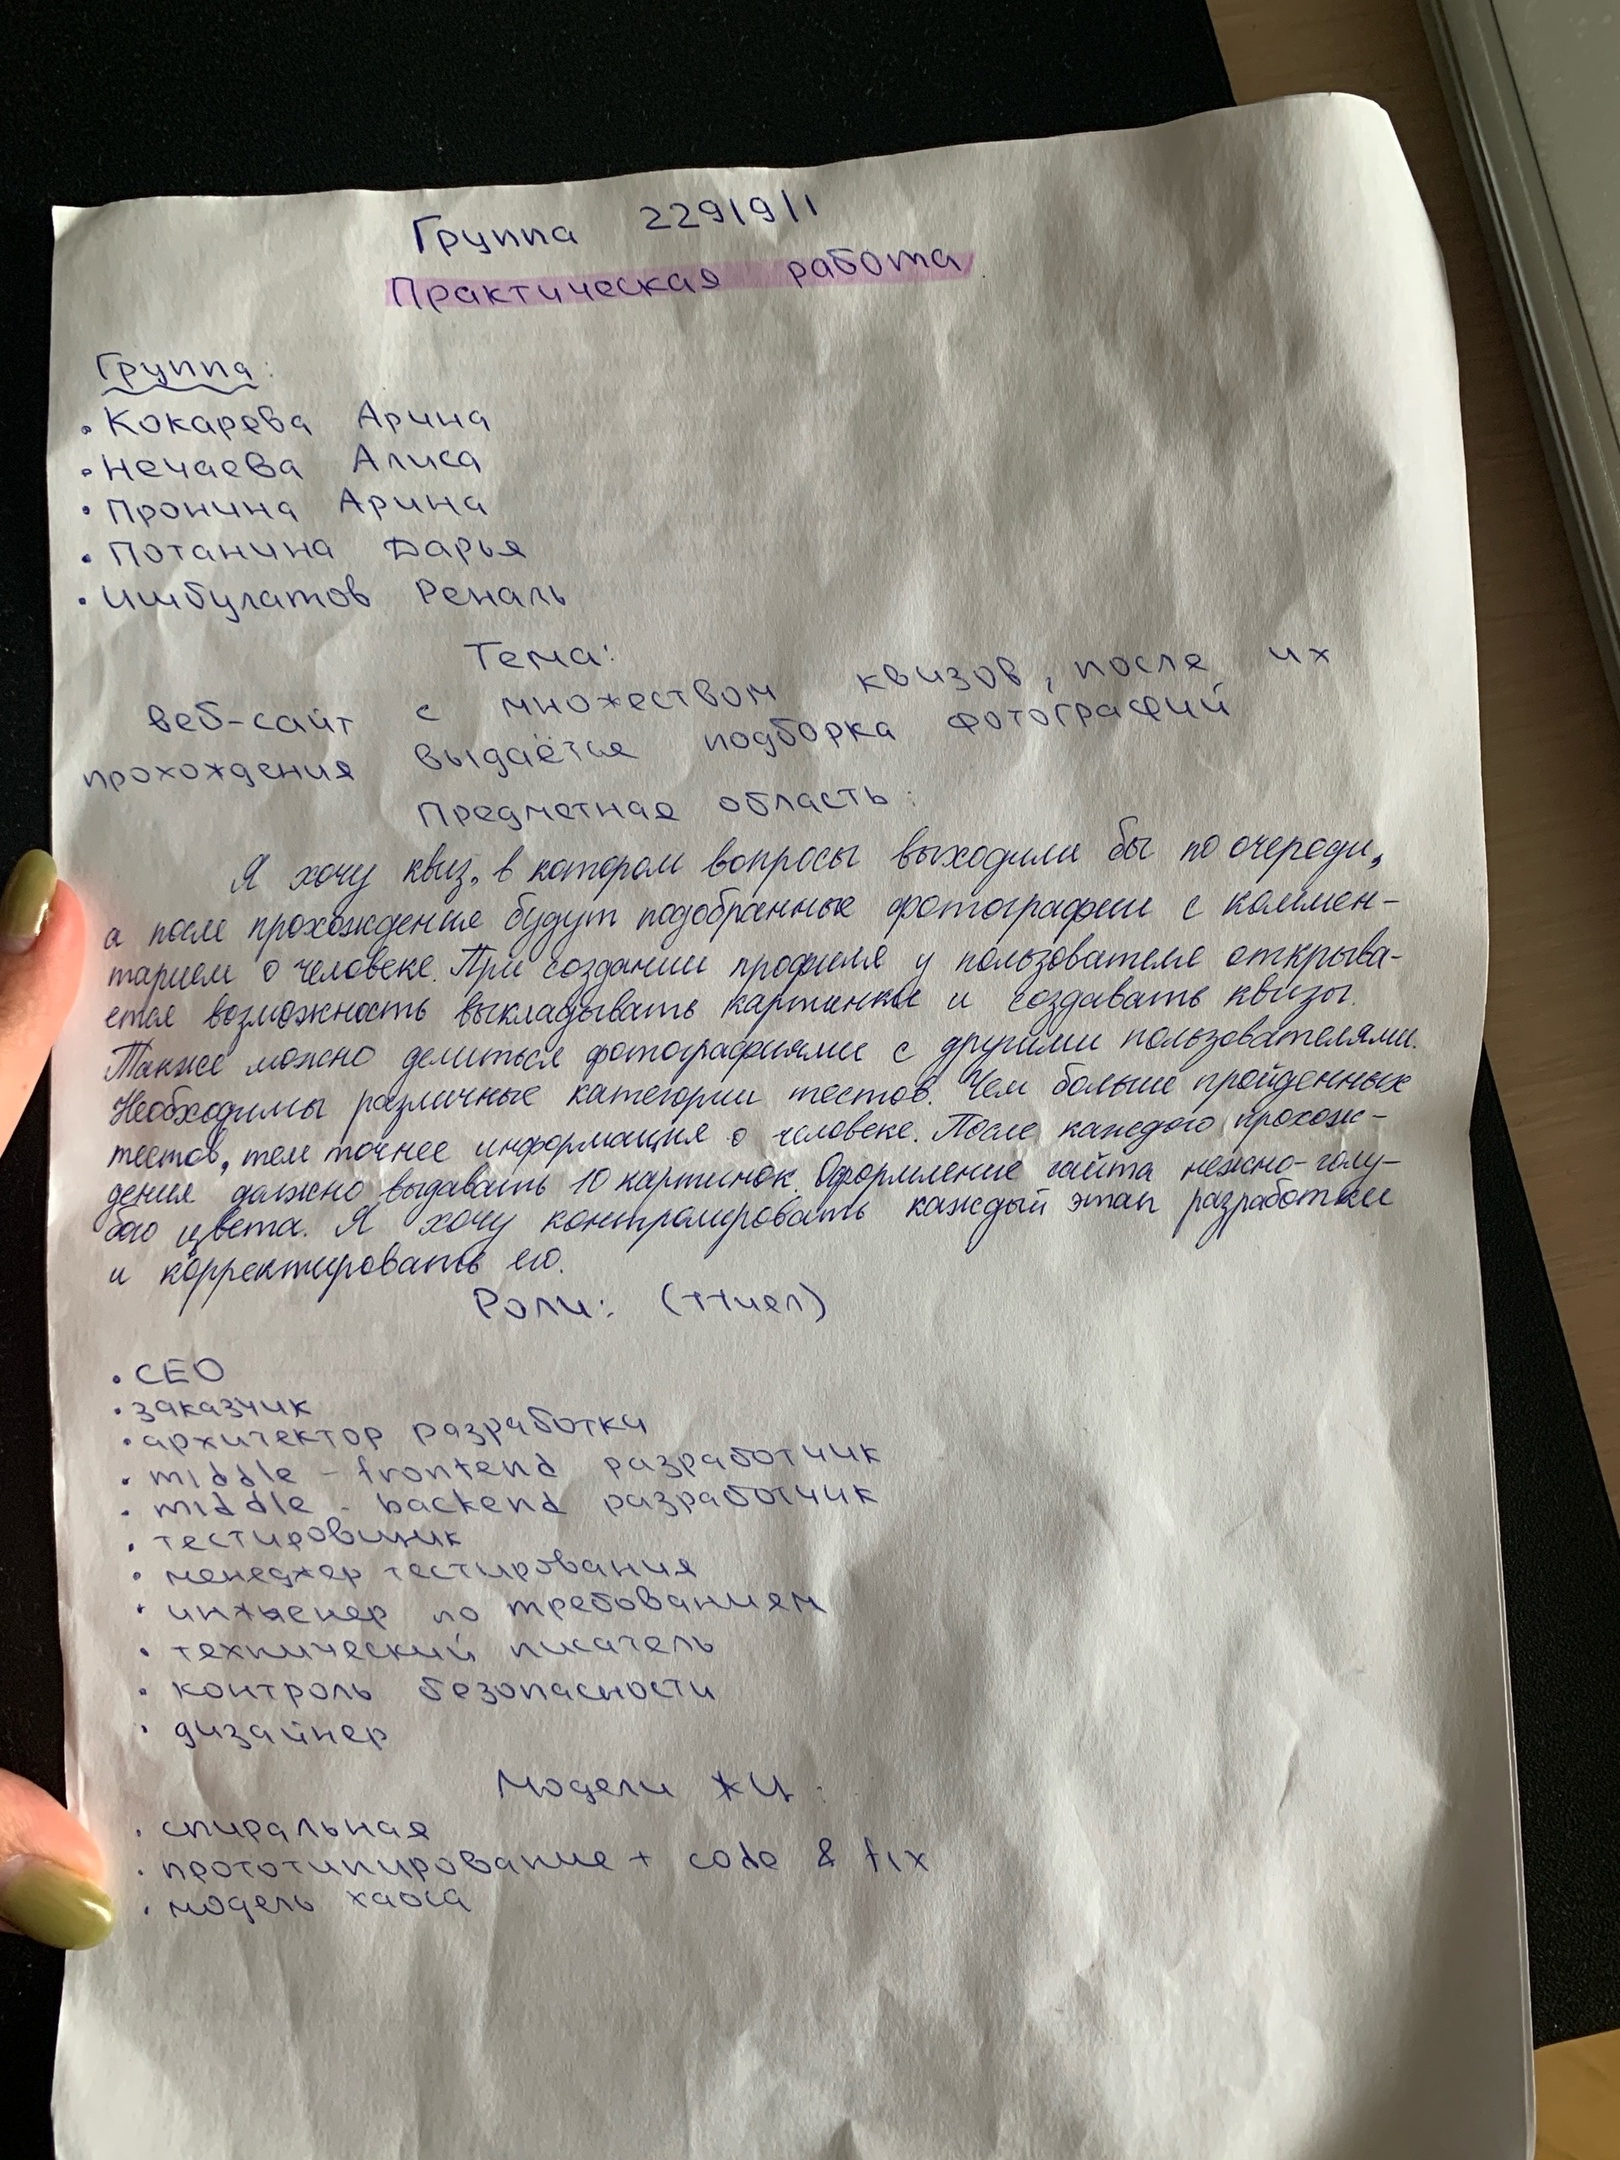 Группа 229/9/1
Практическая работа
Группа:
• Кокарева Арина
• Нечаева Алиса
• Пронина Арина
• Потанина Дарья
• Ишбулатов Реналь
Тема:
веб-сайт с множеством квизов, после их
прохождения выдаётся подборка фотографий
Предметная область:
Я хочу квиз, в котором вопросы выходили бы по очереди,
а после прохождения будут подобранные фотографии с коммен-
тарием о человеке. При создании профиля у пользователя открыва-
ется возможность выкладывать картинки и создавать квизы.
Также можно делиться фотографиями с другими пользователями.
Необходимы различные категории тестов. Чем больше пройденных
тестов, тем точнее информация о человеке. После каждого прохож-
дения должно выдавать 10 картинок. Оформление сайта нежно-голу-
бого цвета. Я хочу контролировать каждый этап разработки
и корректировать его.
Роли: (11чел)
• CEO
• заказчик
• архитектор разработки
• middle - frontend разработчик
• middle - backend разработчик
• тестировщик
• менеджер тестирования
• инженер по требованием
• технический писатель
• контроль безопасности
• дизайнер
Модели ЖЦ:
• спиральная
• прототипирование + code & fix
• модель хаоса